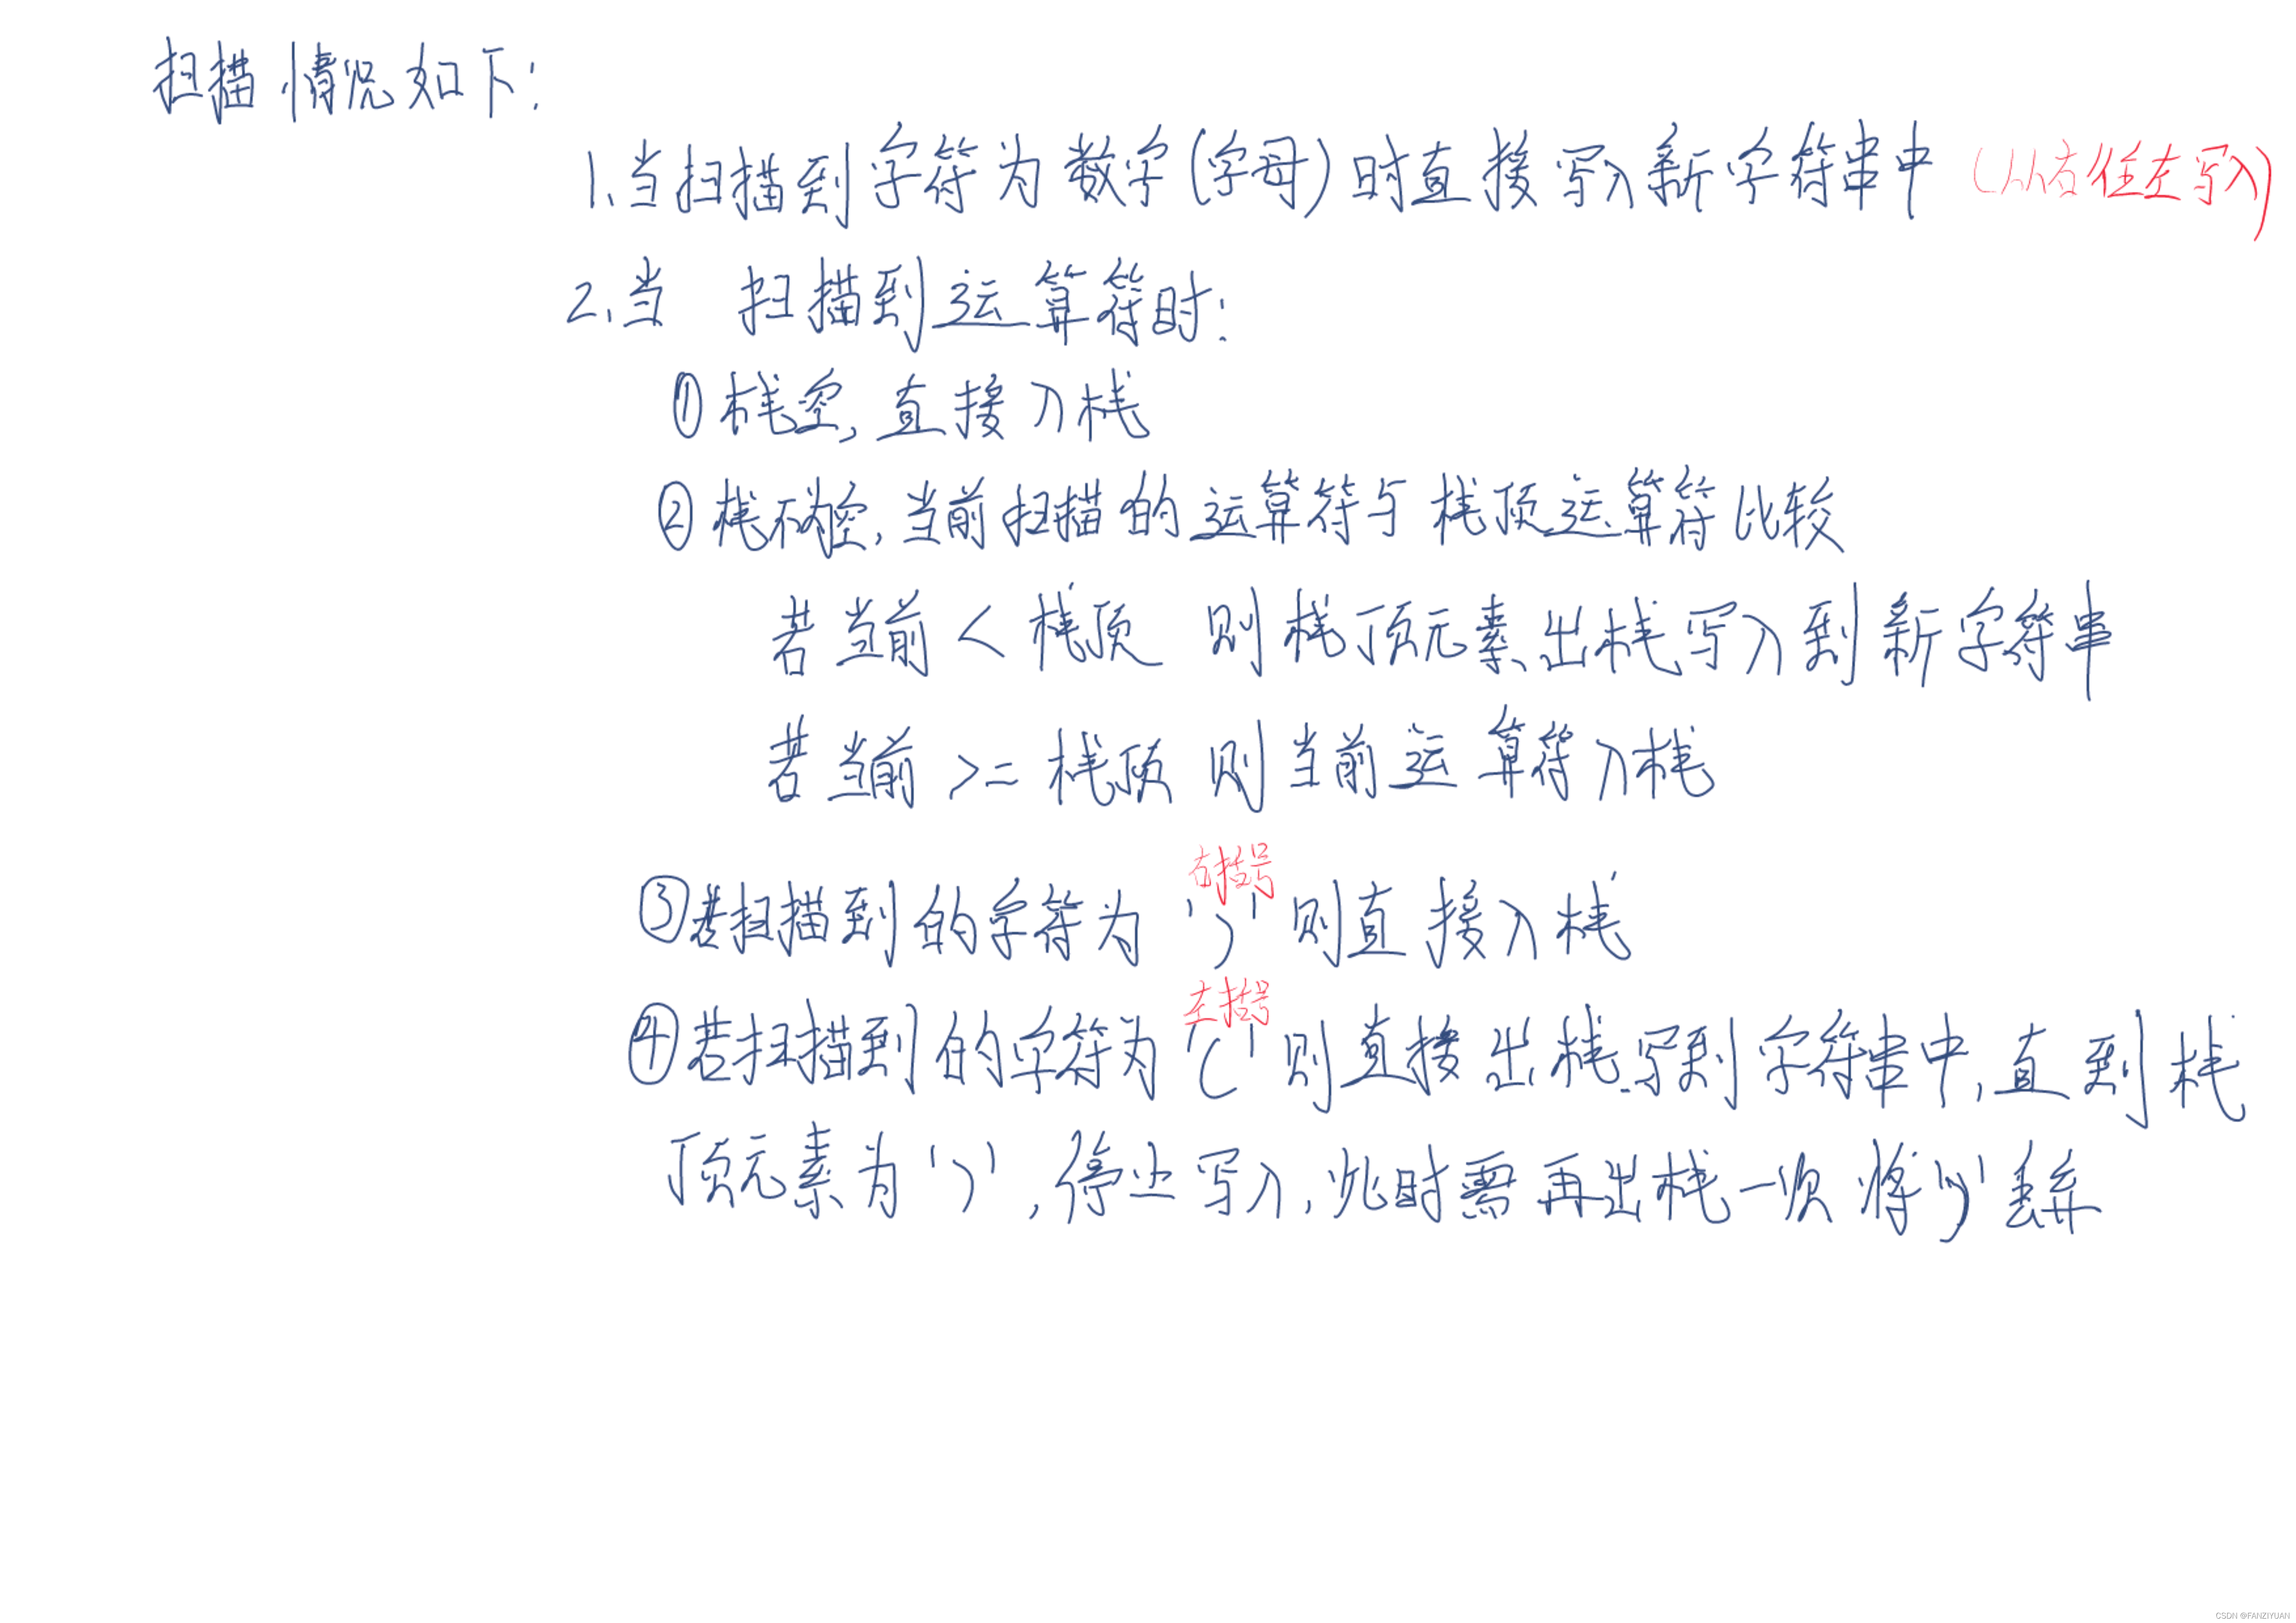 扫描情况如下:
1.当扫描到字符为数字(字母)时直接写入新字符串中(从右往左写入)
2.当 扫描到运算符时:
①栈空,直接入栈
②栈不为空,当前扫描的运算符与栈顶运算符比较
若当前<栈顶 则栈顶元素出栈写入到新字符串
若当前>=栈顶 则当前运算符入栈
右括号
③若扫描到的字符为')'则直接入栈
左括号
④若扫描到的字符为'('则直接出栈写到字符串中,直到栈
顶元素为')',停止写入,此时需再出栈一次将')'丢弃
CSDN @FANZIYUAN